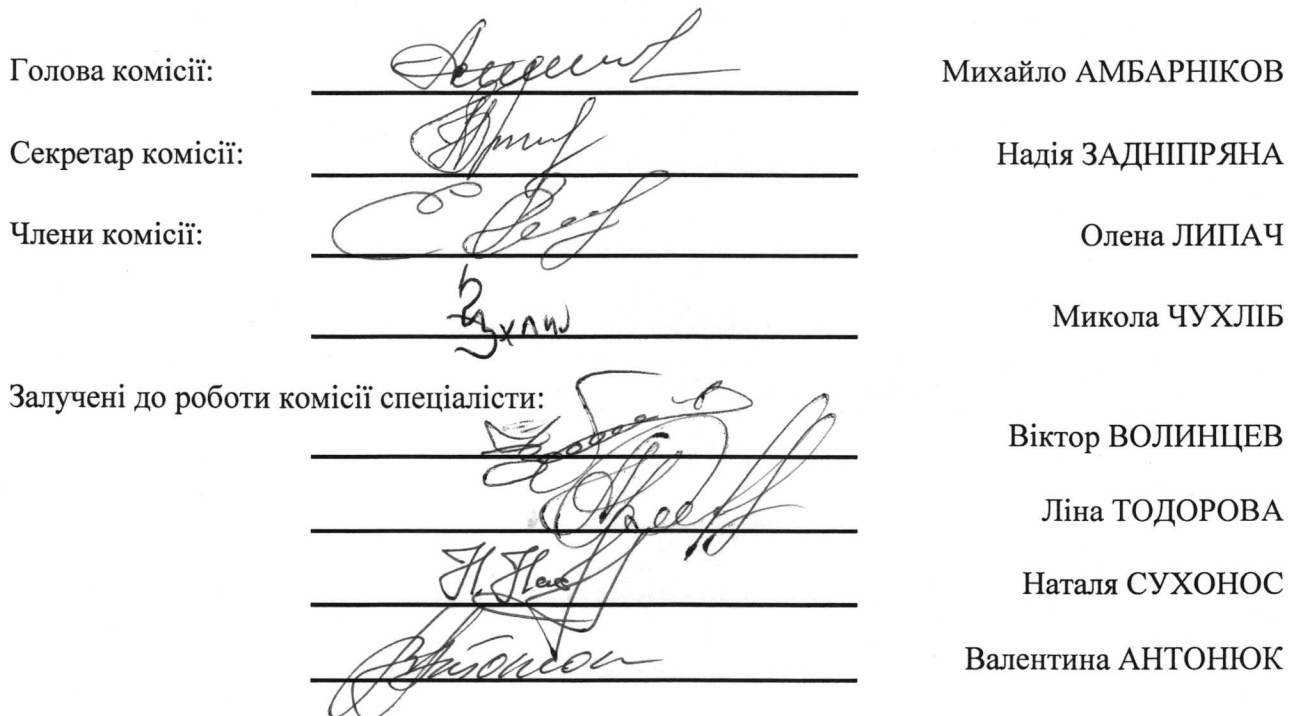 Голова комісії: Михайло АМБАРНІКОВ
Секретар комісії: Надія ЗАДНІПРЯНА
Члени комісії: Олена ЛИПАЧ
Микола ЧУХЛІБ
Залучені до роботи комісії спеціалісти:
Віктор ВОЛИНЦЕВ
Ліна ТОДОРОВА
Наталя СУХОНОС
Валентина АНТОНЮК